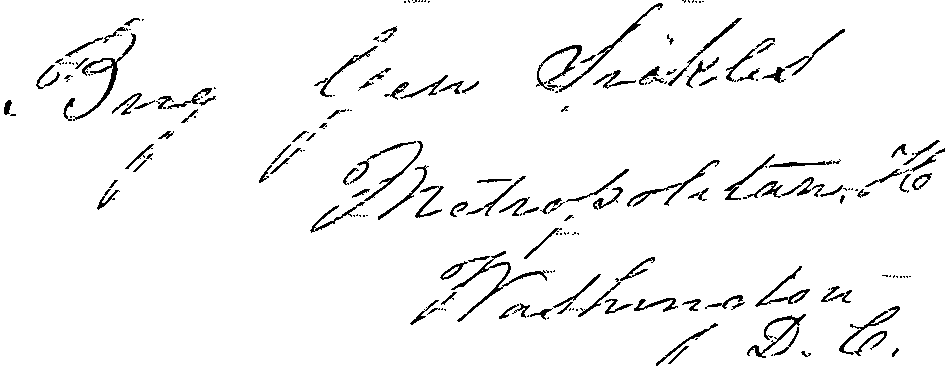 Brig Gen Sickles
Metropolitan H
Washington
D. C.